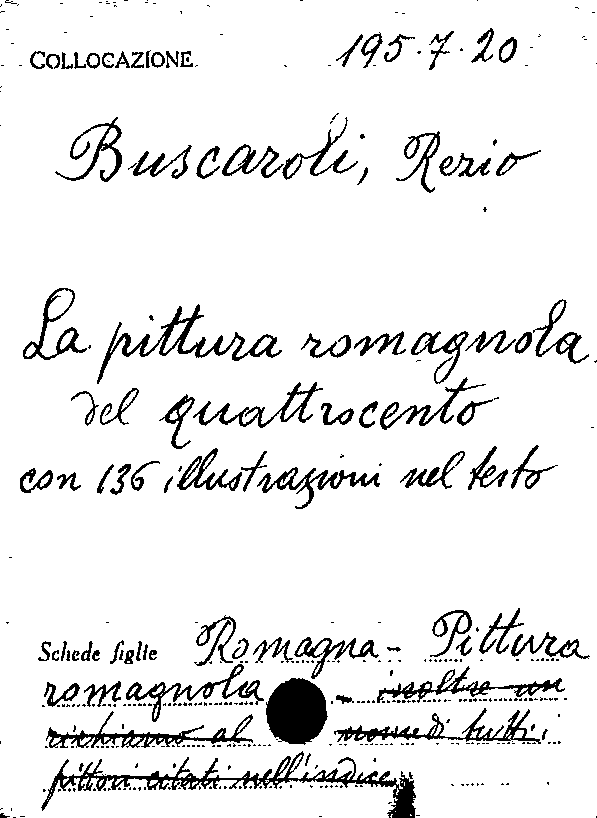 COLLOCAZIONE 195.7.20
Buscaroli, Rezio
La pittura romagnola
del quattrocento
con 136 illustrazioni nel testo
Schede figlie Romagna - Pittura
romagnola - inoltre un
richiamo al nome di tutti i
pittori citati nell'indice